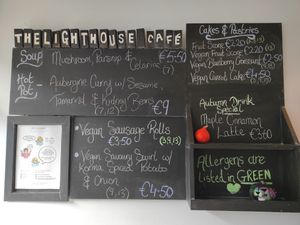 THE LIGHTHOUSE CAFÉ
Soup
Mushroom, Parsnip & €5.50
Celariac
Hot
Pot
Aubergine Curry w/ Sesame,
Tamarind & Kidney Beans
(7,12) €9
Vegan Sausage Rolls
€3.50
Vegan Savoury Swirl w/
Korma Sweet Potato
& Onion
€4.50
Cakes & Pastries
Vegan Fruit Scone
Vegan Cranberry Croissant
Vegan Carrot Cake €4.50
Autumn Drink
Special
Maple Cinnamon
Latte €3.60
Allergens are
listed in GREEN